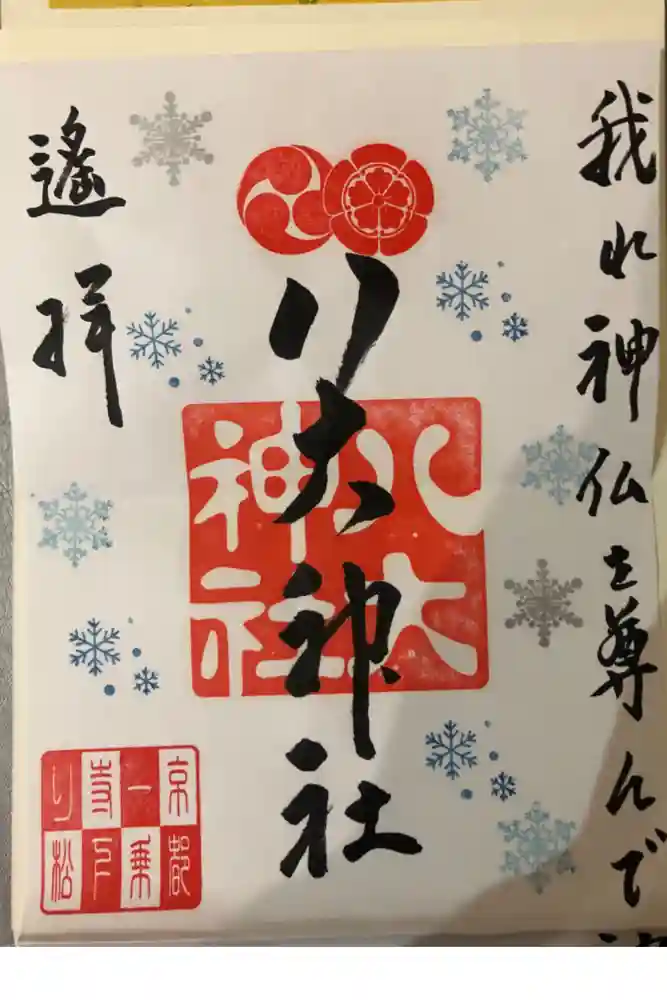 我れ神仏を尊んで
八大神社
八大
神社
遙拝
京都
一乗
寺下
り松